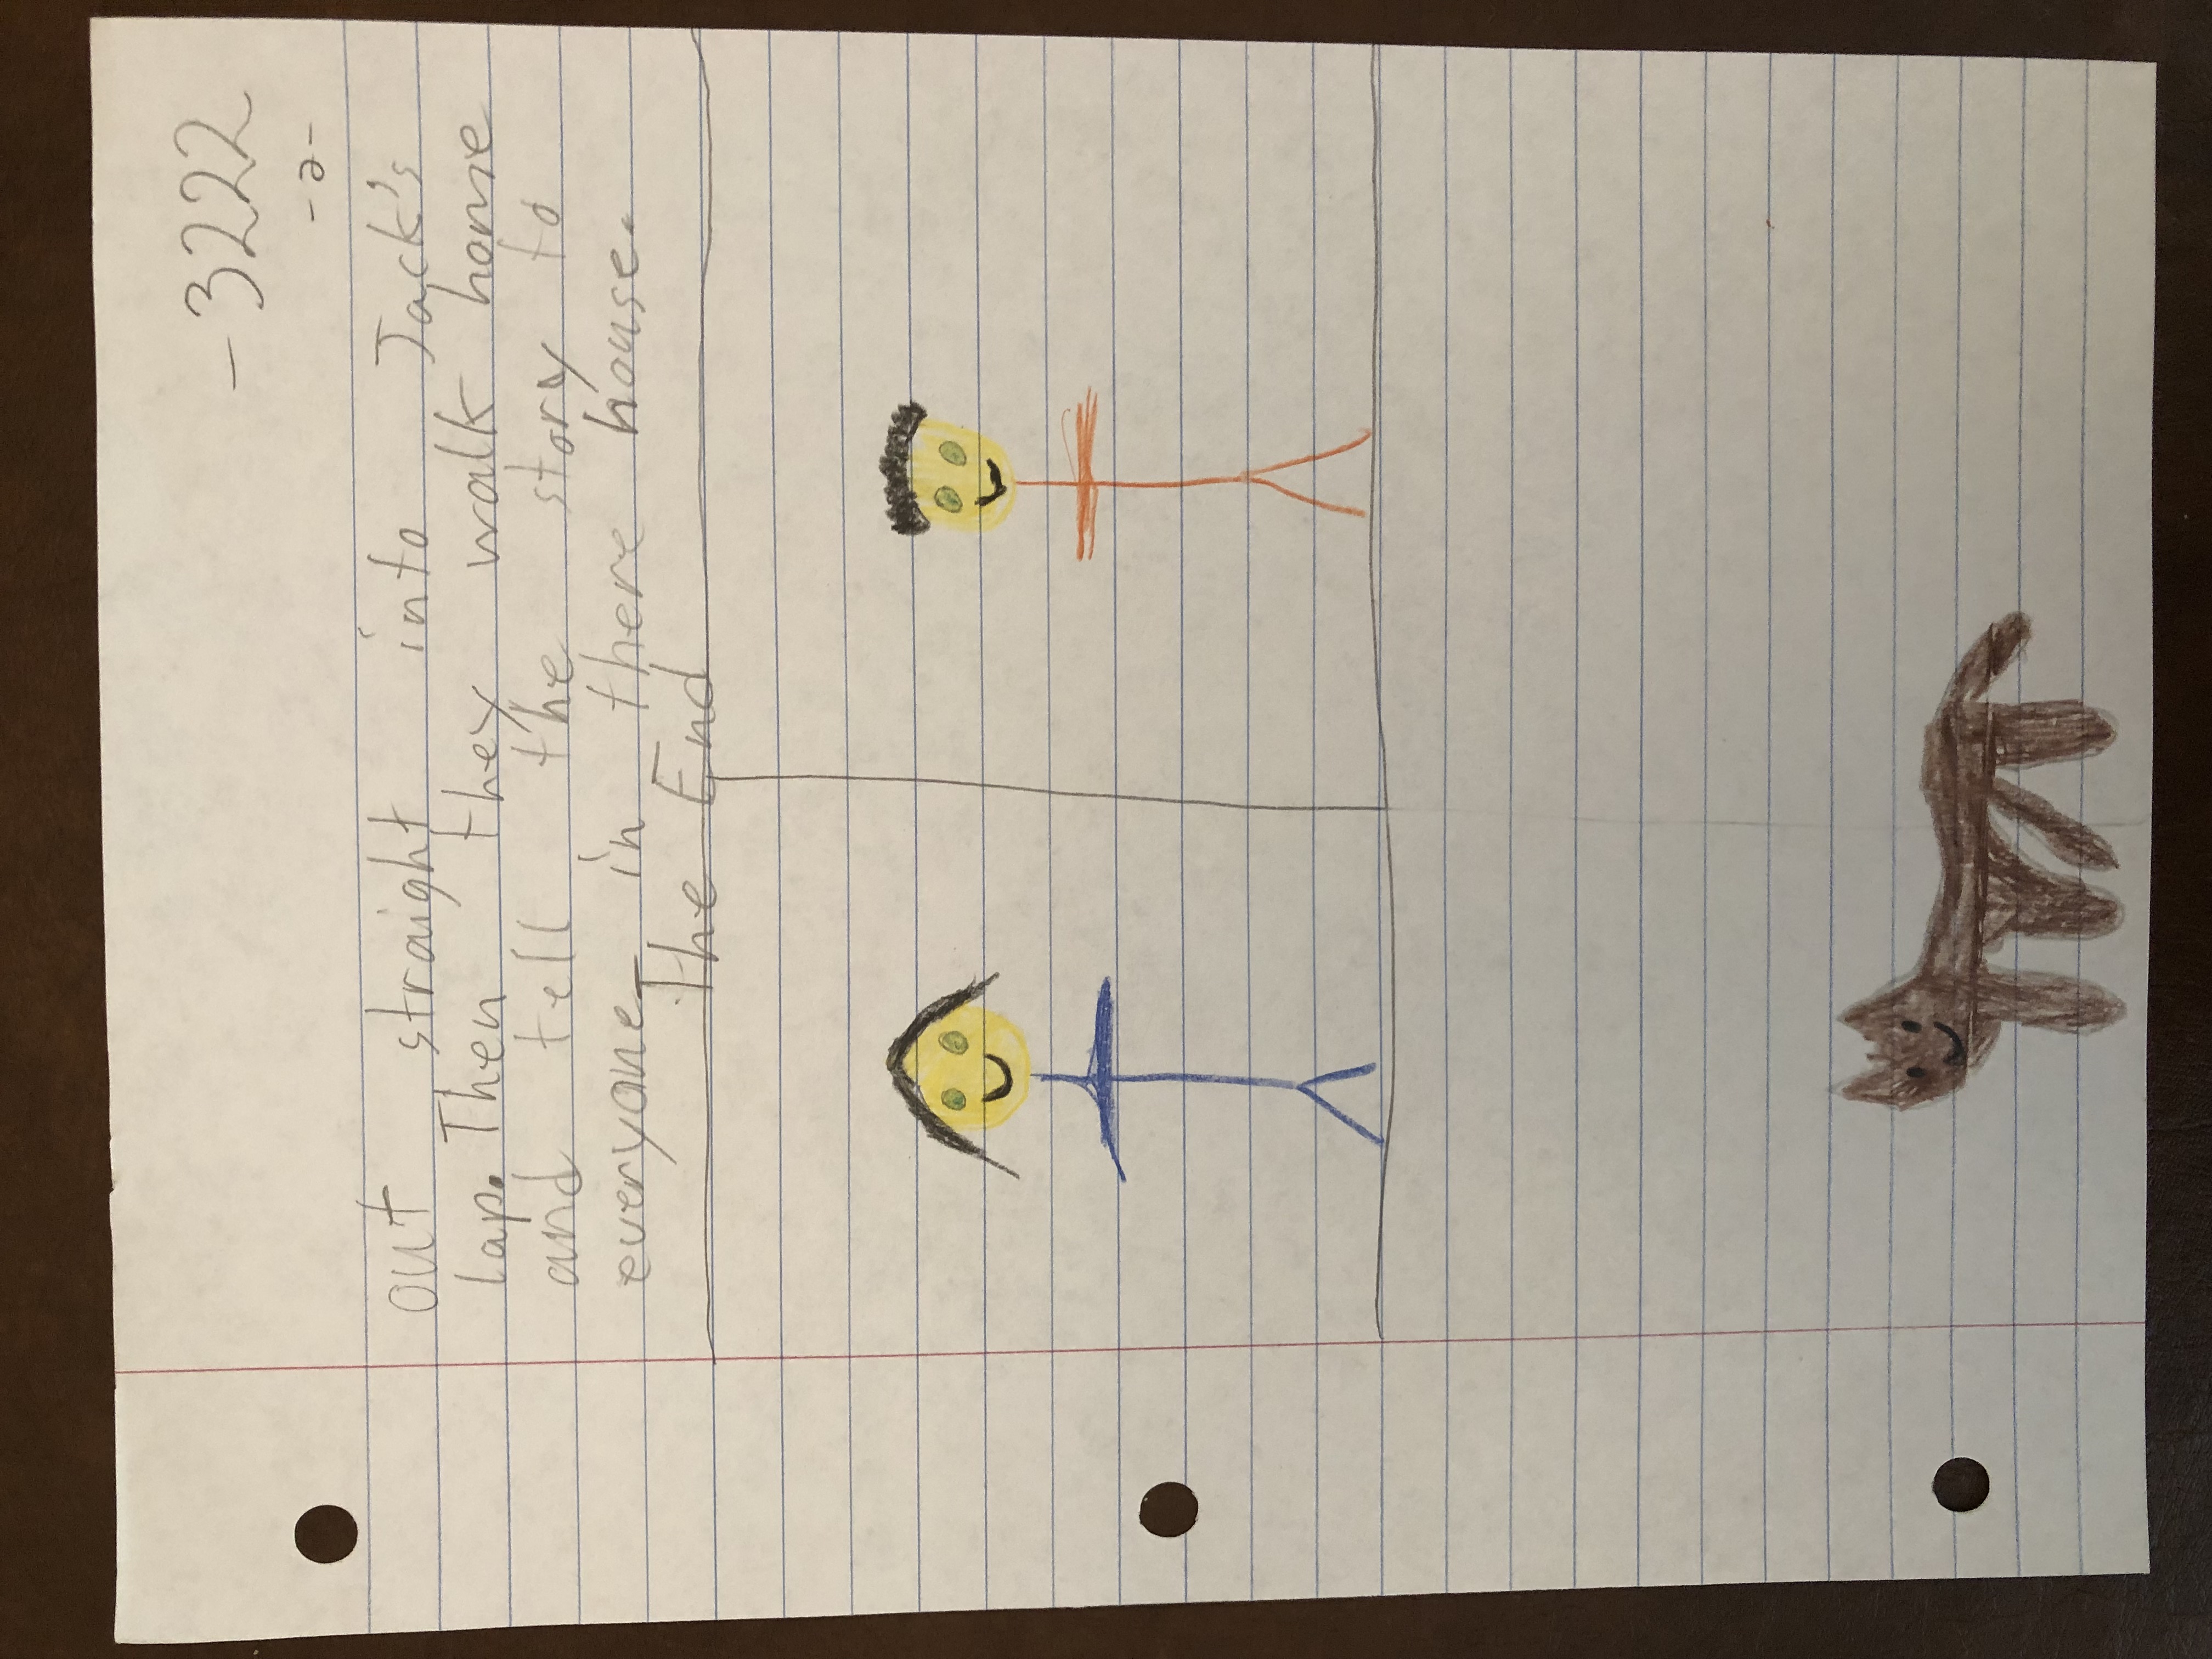 -3222
-2-
out straight into Jack's
lap. Then they walk home
and tell the story to
everyone in there house.
The End